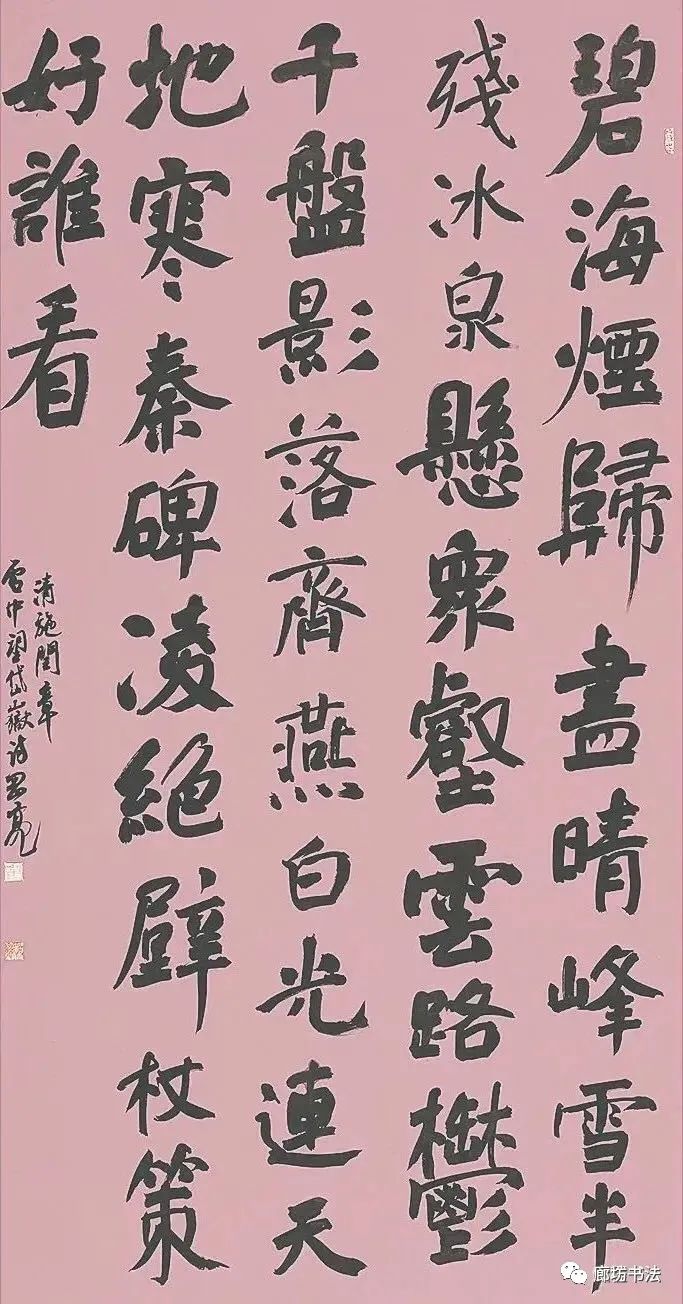 碧海煙歸盡晴峰雪半
殘冰泉懸衆壑雲路鬱
千盤影落齊燕白光連天
地寒秦碑凌絕壁杖策
好誰看
清施閏章
雪中望岱嶽詩
廊坊书法